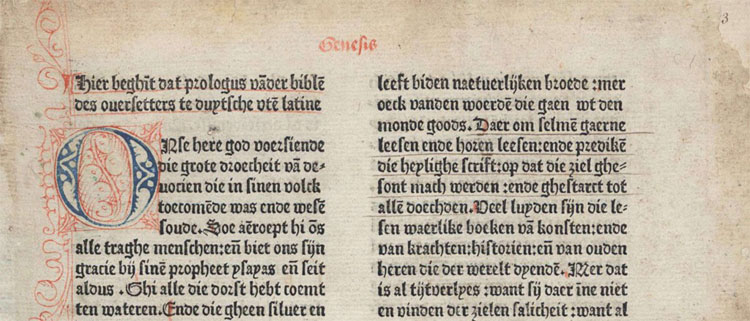 Genesis
3
Hier beghīt dat prologus vāder biblē
des ouersetters te duytsche vtē latine
ONse here god voersiende
die grote droecheit vā de-
uocien die in sinen volck
toecomēde was ende wesē
soude. Soe aēroept hi ōs
alle traghe menschen: eñ biet ons sijn
gracie bij sinē propheet ysayas eñ seit
aldus . Ghi alle die dorst hebt coemt
ten wateren. Ende die gheen siluer en
leeft biden naetuerlijken broede :mer
oeck vanden woerdē die gaen wt den
monde goods. Daer om selmē gaerne
leesen ende horen leesen: ende predikē
die heylighe scrift: op dat die ziel ghe-
sont mach werden : ende ghestarct tot
allē doechden. Veel luyden sijn die le-
sen waerlike boeken vā konsten: ende
van krachten: historien: eñ van ouden
heren die der werelt dyendē. Mer dat
is al tijtverlyes : want sij daer īne niet
en vinden der zielen salicheit : want al